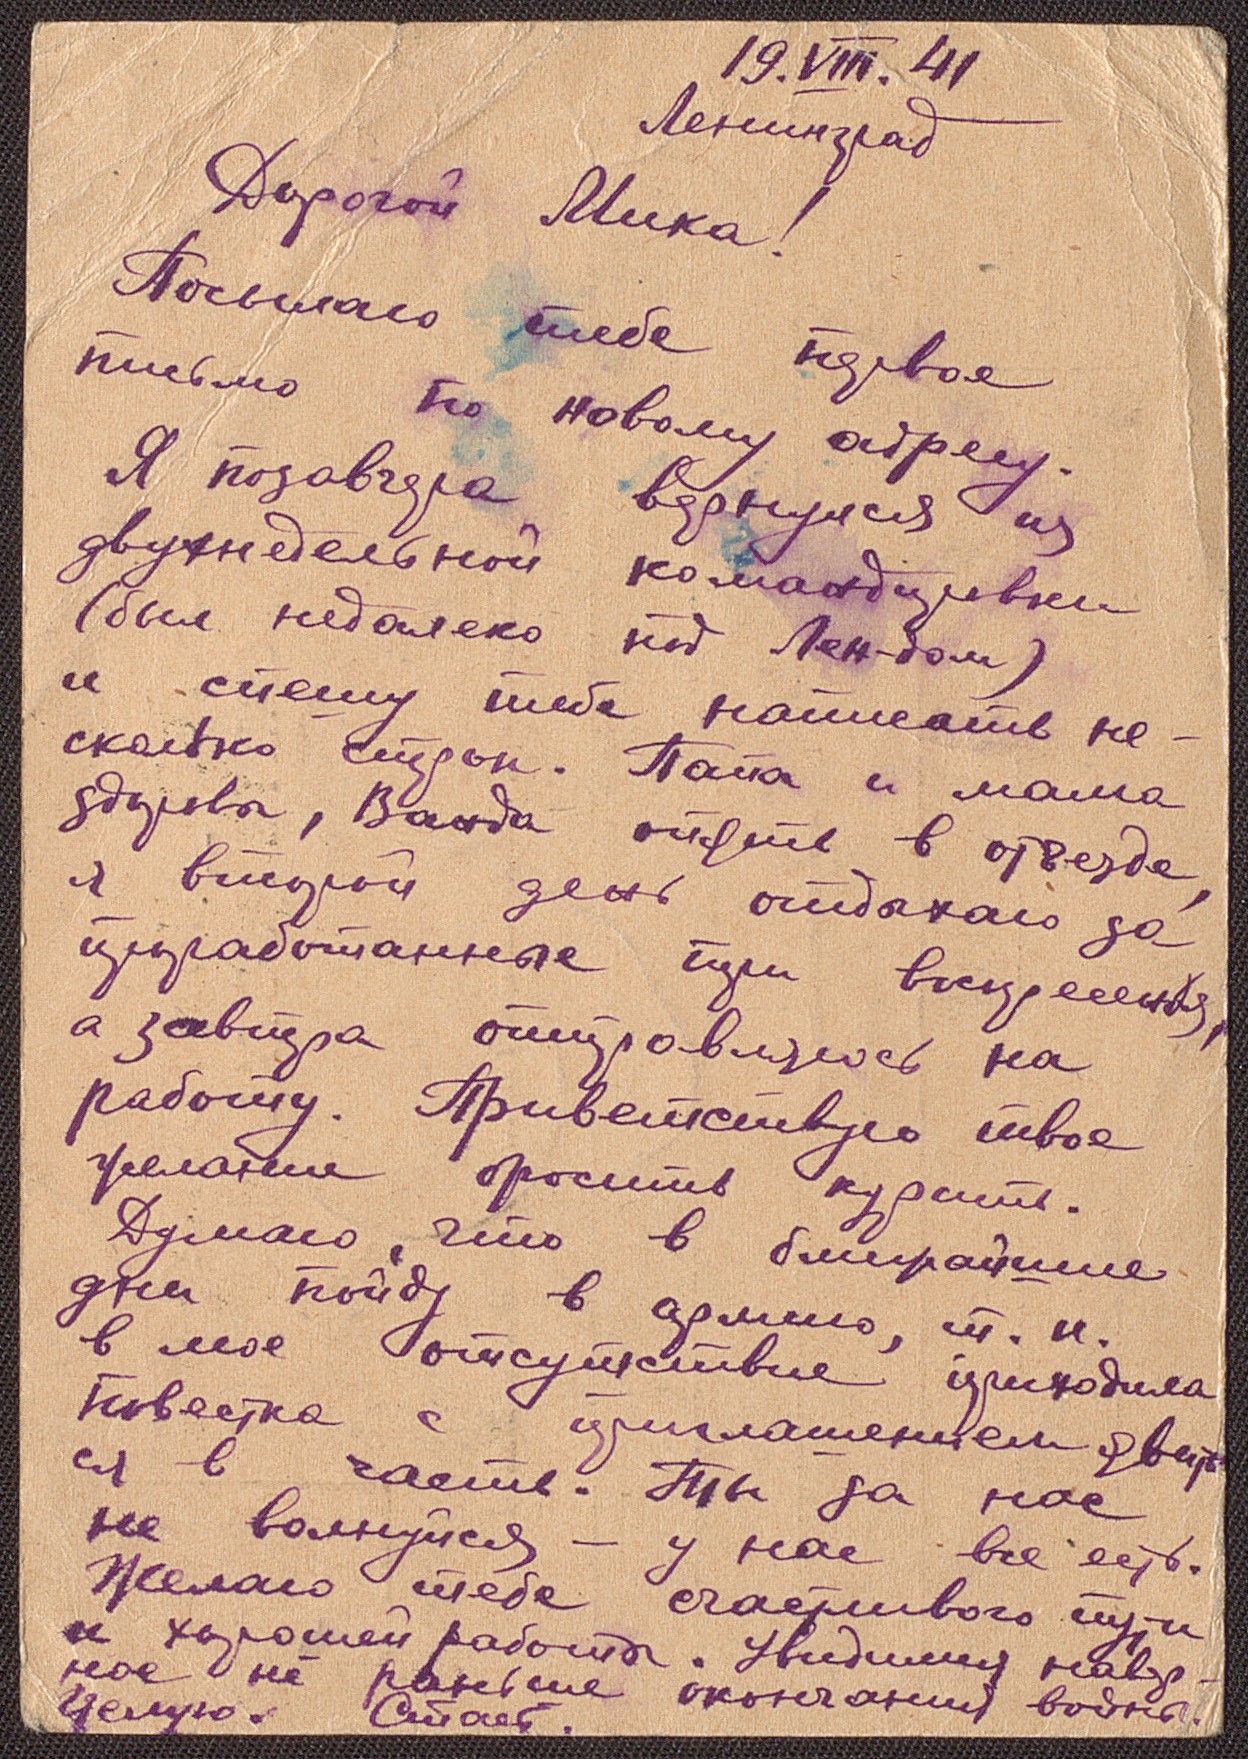 19.VIII.41
Ленинград
Дорогой Мика!
Посылаю тебе первое
письмо по новому адресу.
Я позавчера вернулся из
двухнедельной командировки
(был недалеко под Лен-дом)
и спешу тебе написать не-
сколько строк. Папа и мама
здоровы, Ванда опять в отъезде,
я второй день отдыхаю за
проработанные три воскресенья,
а завтра отправляюсь на
работу. Приветствую твое
желание бросить курить.
Думаю, что в ближайшие
дни пойду в армию, т. к.
в мое отсутствие приходила
повестка с приглашением явить
ся в часть. Ты за нас
не волнуйся – у нас все есть.
Желаю тебе счастливого пути
и хорошей работы. Увидимся навер-
ное не раньше окончания войны.
Целую. Стась.